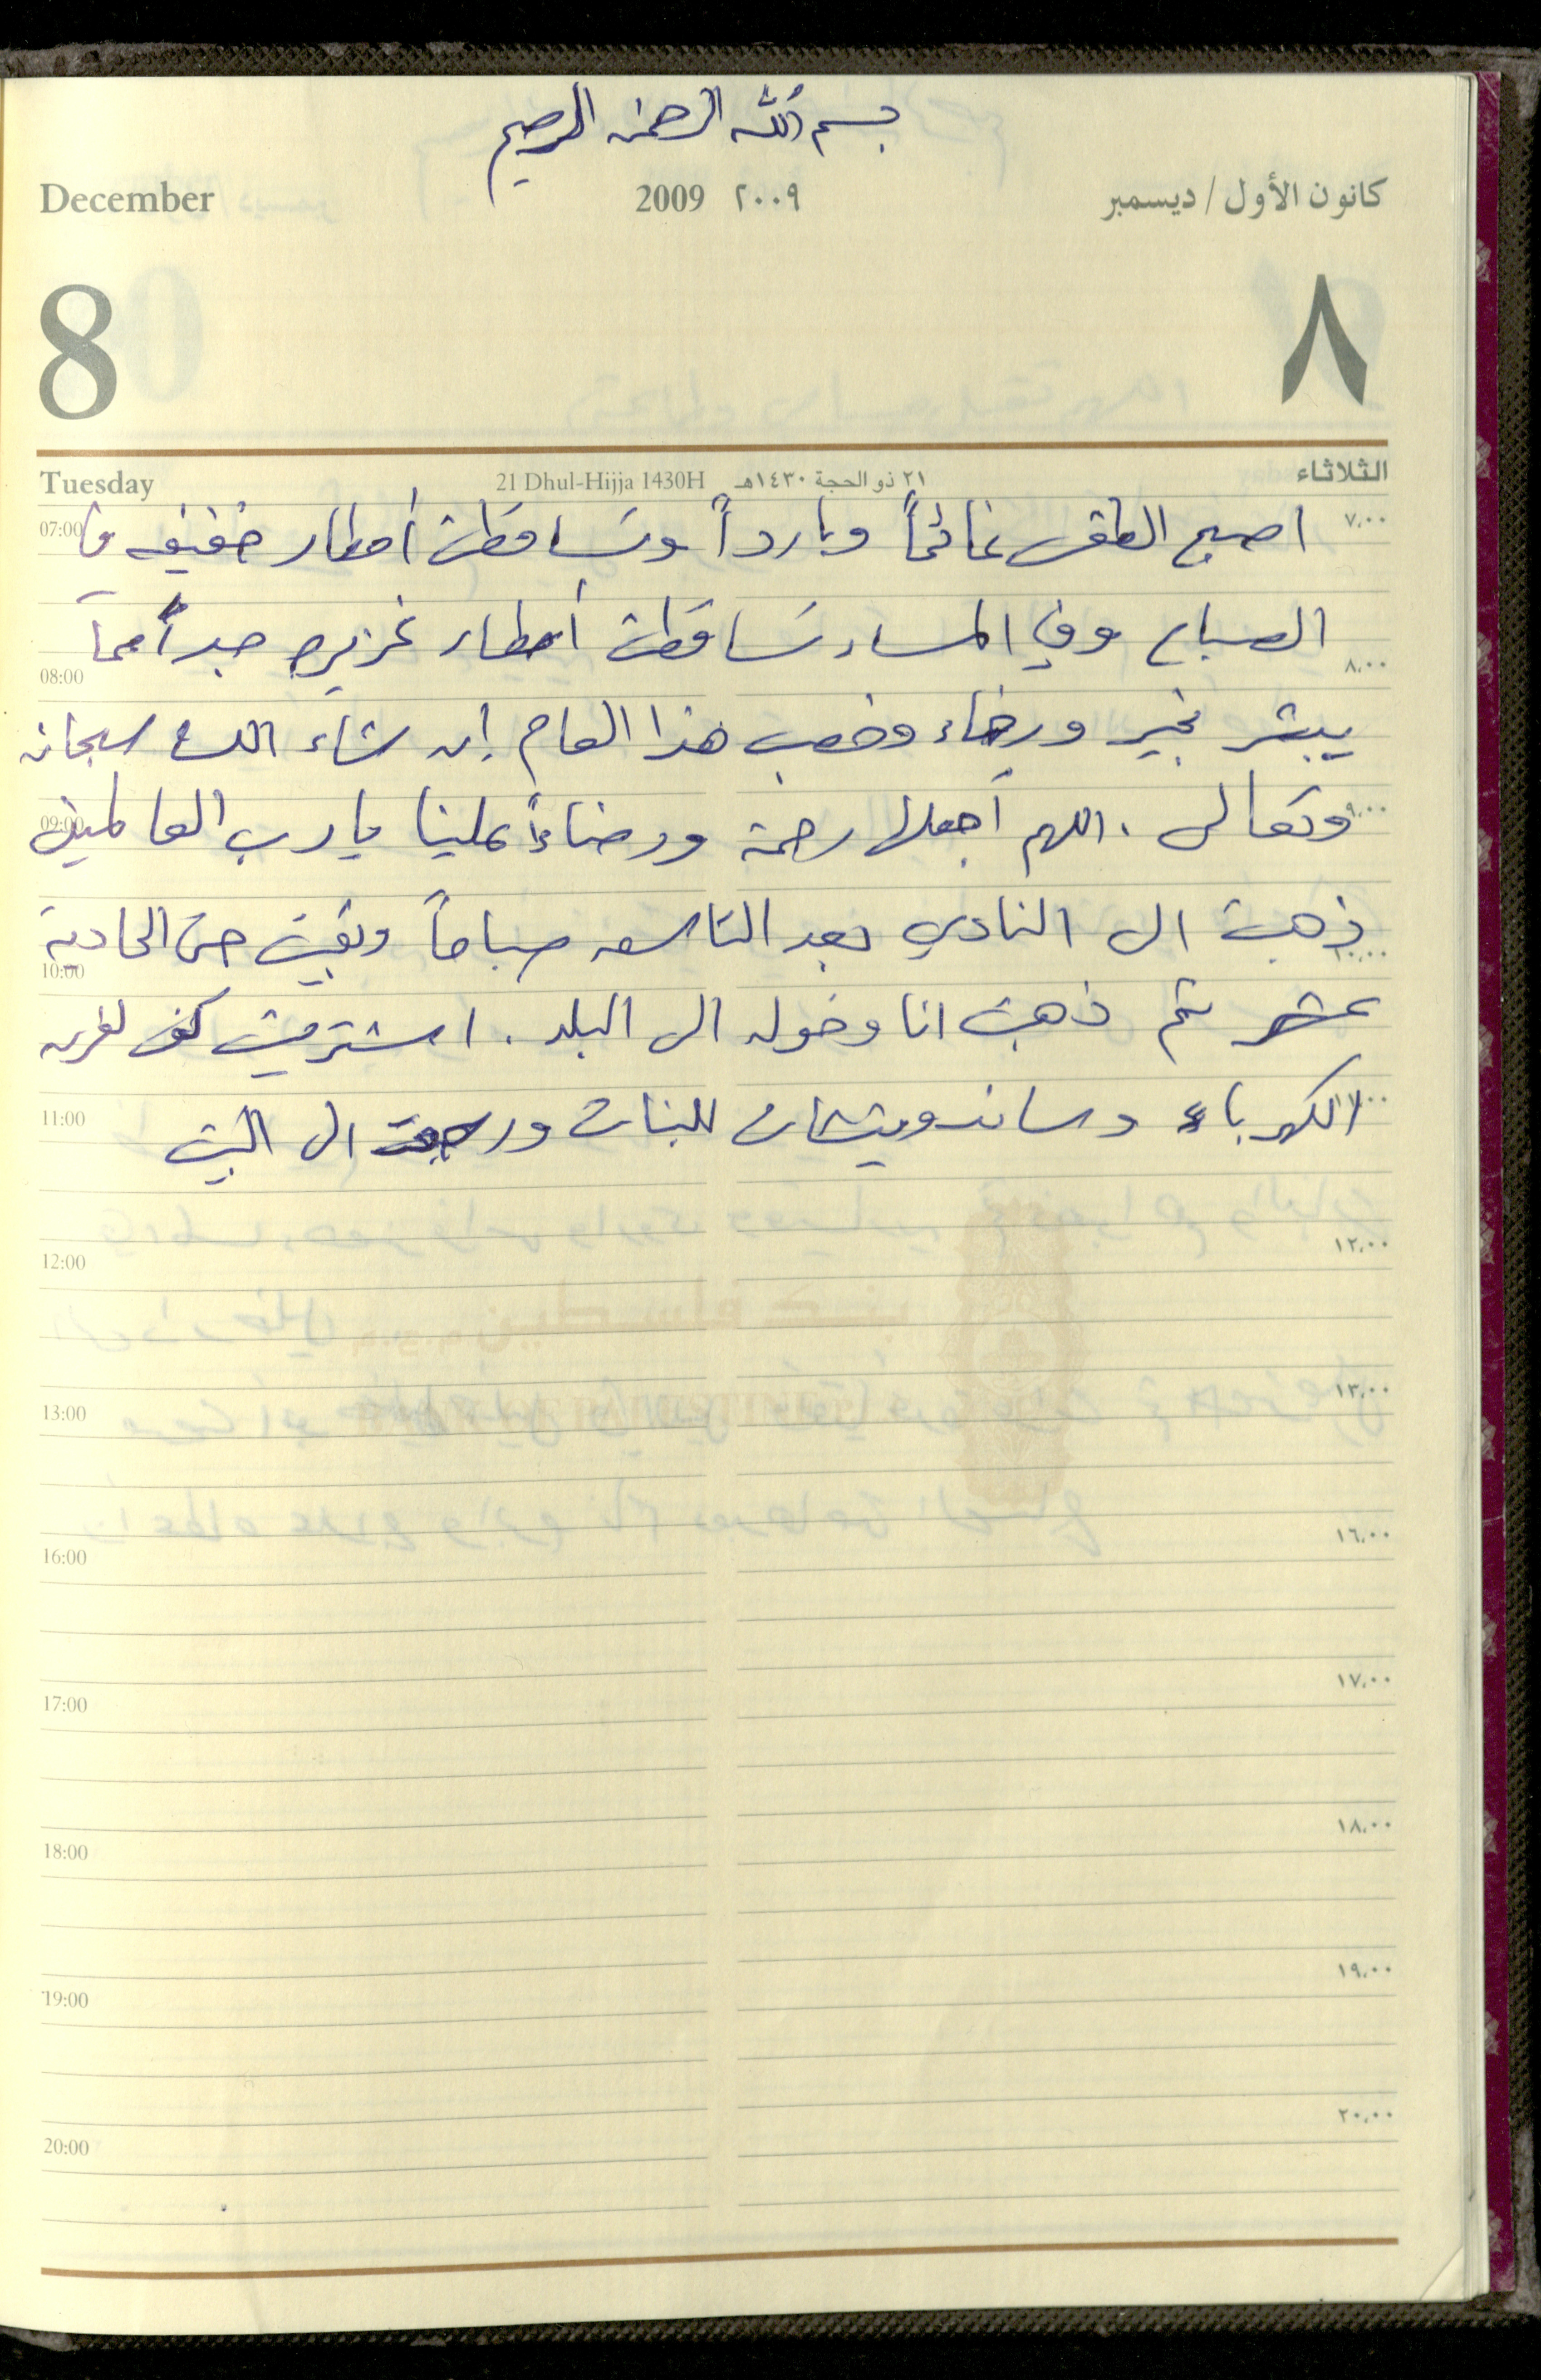 بسم الله الرحمن الرحيم
December 2009 ٢٠٠٩ كانون الأول / ديسمبر
8 ٨
Tuesday 21 Dhul-Hijja 1430H ٢١ ذو الحجة ١٤٣٠هـ الثلاثاء
07:00 اصبح الطقس غائماً وبارداً وتساقطت أمطار خفيفه في ٧,٠٠
الصباح وفي المساء تساقطت أمطار غزيره جداً مما
08:00 ٨,٠٠
يبشر بخير ورخاء وخصب هذا العام إن شاء الله سبحانه
09:00 وتعالى . اللهم أجعلها رحمة ورضاءً علينا يا رب العالمين ٩,٠٠
ذهبت الى النادي بعد التاسعه صباحاً وبقيت حتى الحادية
10:00 ١٠,٠٠
عشر ثم ذهبت انا وخوله الى البلد . اشتريت
11:00 الكهرباء وساندويتشات للبنات ورجعت الى البيت ١١,٠٠
12:00 ١٢,٠٠
13:00 ١٣,٠٠
16:00 ١٦,٠٠
17:00 ١٧,٠٠
18:00 ١٨,٠٠
19:00 ١٩,٠٠
20:00 ٢٠,٠٠